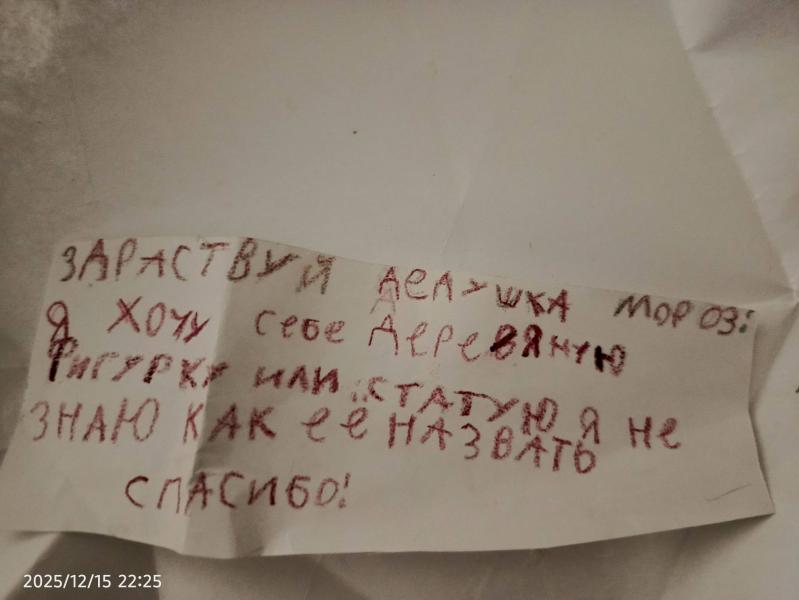 ЗДРАСТВУЙ ДЕДУШКА МОРОЗ:
Я ХОЧУ себе ДеРеВЯНУЮ
ФИГУРКУ ИЛИ СТАТУЮ Я Не
ЗНАЮ КАК её НАЗВАТЬ
СПАСИБО!
2025/12/15 22:25